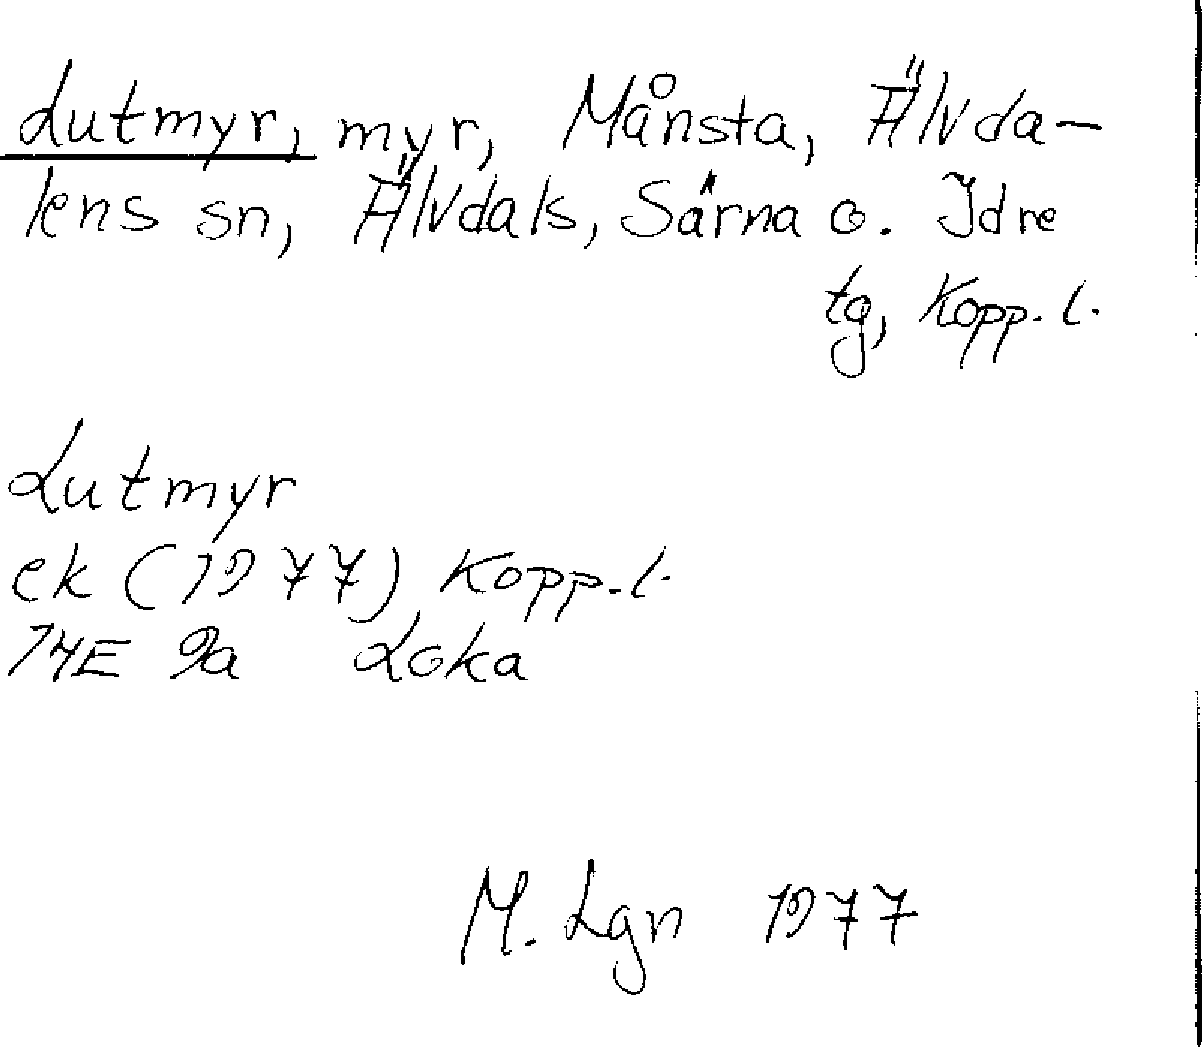 Lutmyr, myr, Månsta, Älvda-
lens sn, Älvdals, Särna o. Idre
tg, Kopp. l.
Lutmyr
ek (1977) Kopp. l.
14E 9a Loka
M. Lgn 1977